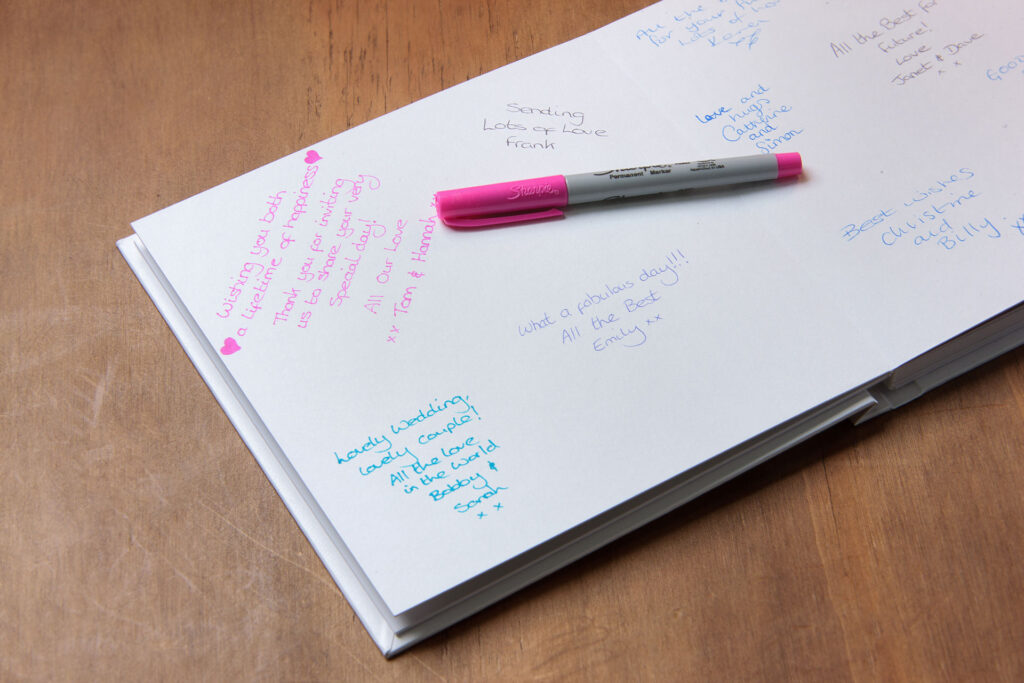 All the
for your
for Lots of
Karen
All the Best for
Future!
Love
Janet & Dave
x x
Sending
Lots of Love
Frank
Love and
hugs
Catherine
and
Simon
Wishing you both
a lifetime of happiness
Thank you for inviting
us to share your very
Special day!
All Our Love
xx Tom & Hannah
Sharpie
Permanent Marker
Best wishes
Christine
and
Billy xx
What a fabulous day!!!
All the Best
Emily xx
Lovely Wedding,
Lovely Couple!
All the love
in the world
Bobby &
Sarah
x x